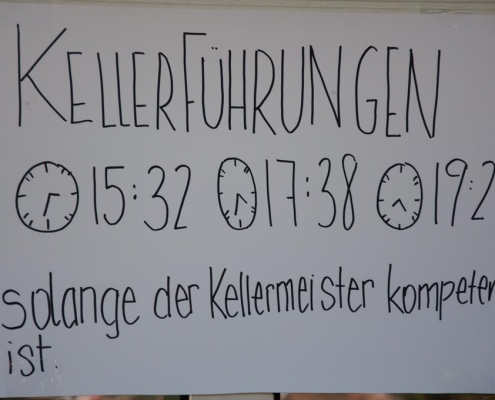 KELLERFÜHRUNGEN
15:32 17:38 19:2
solange der Kellermeister kompeten
ist.